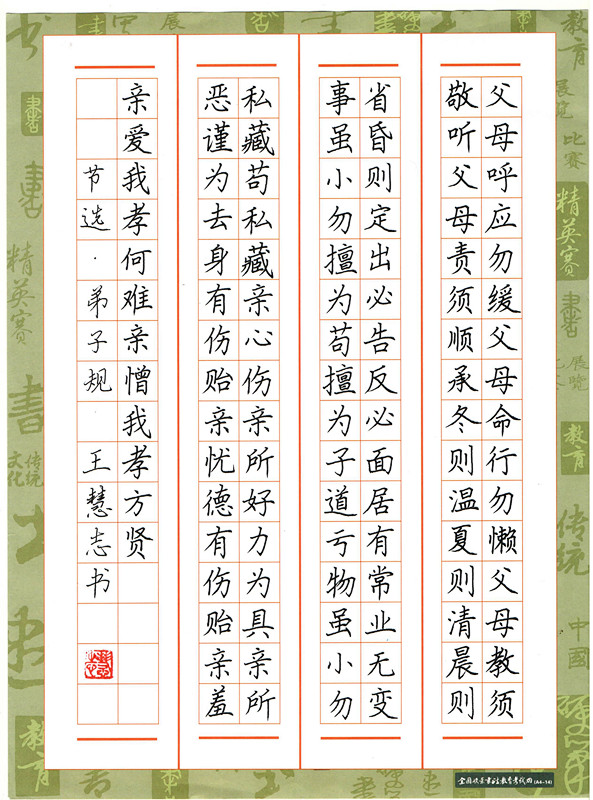 父母呼应勿缓父母命行勿懒父母教须
敬听父母责须顺承冬则温夏则清晨则
省昏则定出必告反必面居有常业无变
事虽小勿擅为苟擅为子道亏物虽小勿
私藏苟私藏亲心伤亲所好力为具亲所
恶谨为去身有伤贻亲忧德有伤贻亲羞
亲爱我孝何难亲憎我孝方贤
节选·弟子规 王慧志书
教育
展览
比赛
精英赛
展览
教育
传统
中國
精英赛
書
传统
文化
教育
(A4-14)